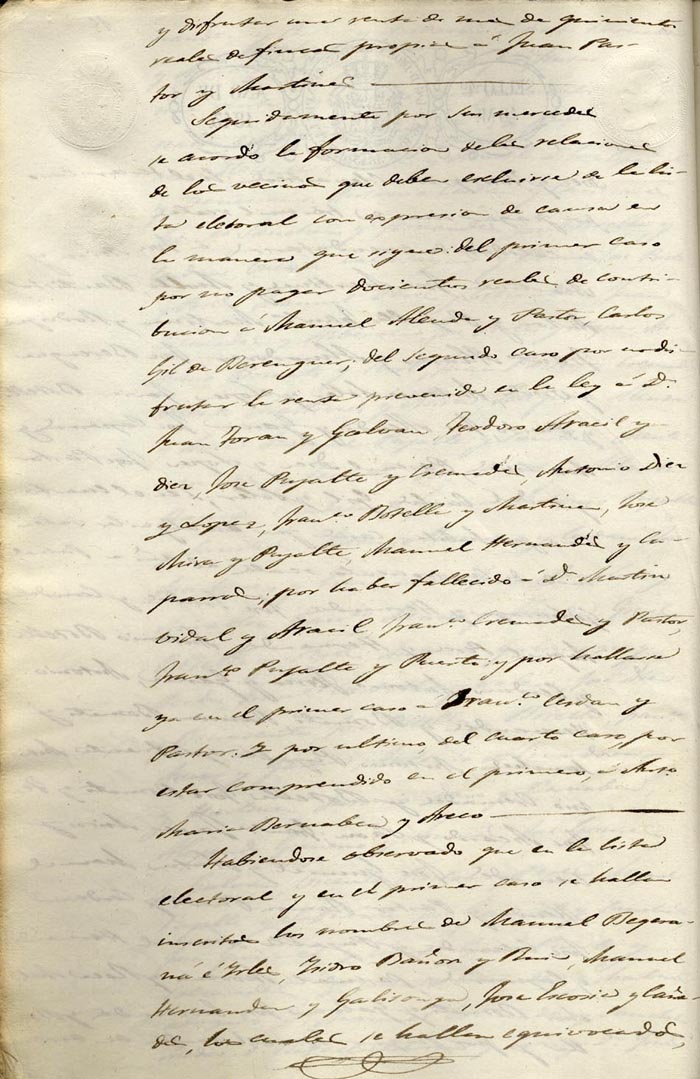 y disfrutar una renta de mas de quinientos
reales de fincas propias á Juan Pas-
tor y Martinez
Seguidamente por sus mercedes
se acordó la formacion de las relaciones
de los vecinos que deben escluirse de la lis-
ta electoral con espresion de causa en
la manera que sigue: del primer caso
por no pagar doscientos reales de contri-
bucion á Manuel Alenda y Pastor, Carlos
Gil de Berenguer; del segundo caso por no dis-
frutar la renta prevenida en la ley á D.
Juan Toran y Galvan, Teodoro Aracil y
Diez, Jose Pujalte y Cremades, Antonio Diez
y Lopez, Fran.co Botella y Martinez, Jose
Mira y Pujalte, Manuel Hernandez y Ca-
parros; por haber fallecido á D. Martin
Vidal y Aracil, Fran.co Cremades y Pastor,
Fran.co Pujalte y Puerta; y por hallarse
ya en el primer caso a Fran.co Cerdan y
Pastor. Y por ultimo, del cuarto caso, por
estar comprendido en el primero, á
Maria Bernabeu y
Habiendose observado que en la lista
electoral y en el primer caso se hallan
inscritos los nombres de Manuel
Isidro Bañon y Manuel
Hernandez y Jose Escosia y
des, los cuales se hallan equivocados,